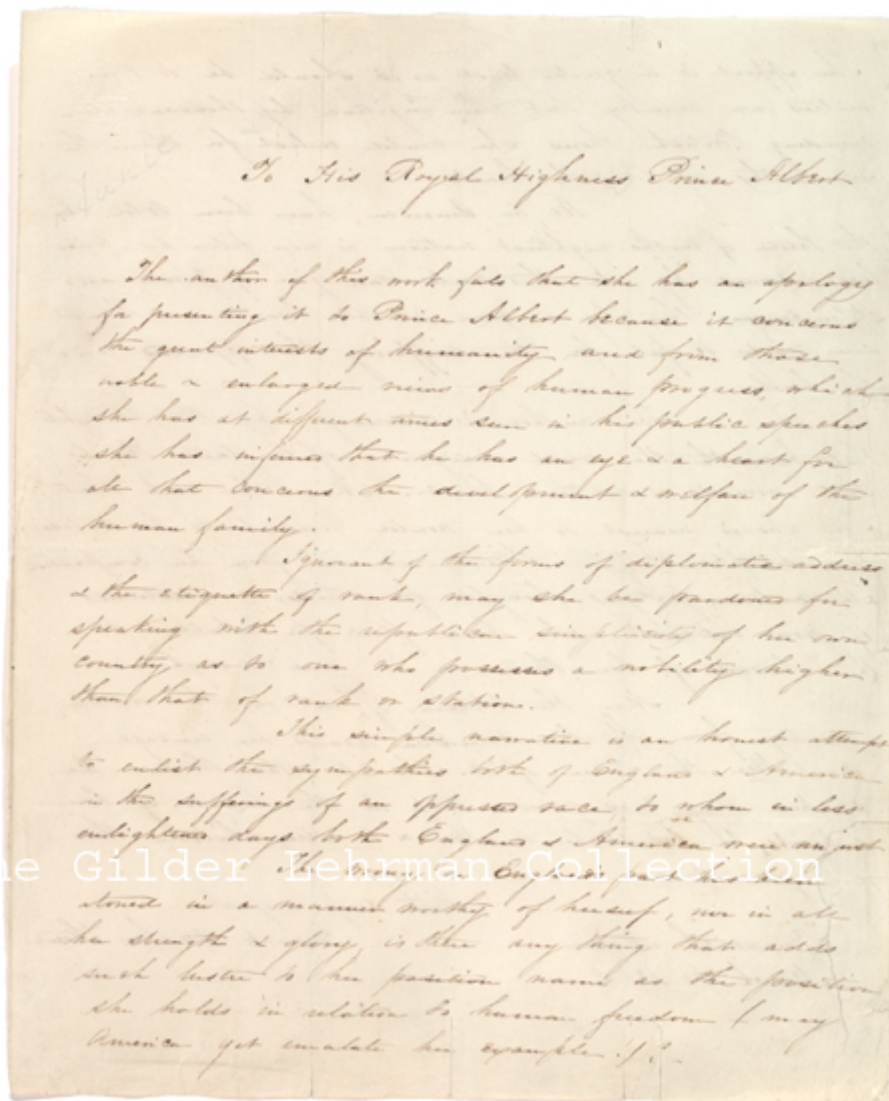 To His Royal Highness Prince Albert
The author of this work feels that she has an apology
for presenting it to Prince Albert because it concerns
the great interests of humanity and from those
noble & enlarged views of human progress, which
she has at different times seen in his public speeches
she has inferred that he has an eye & a heart for
all that concerns the development & welfare of the
human family.
Ignorant of the forms of diplomatic address
& the etiquette of rank, may she be pardoned for
speaking with the republican simplicity of her own
country, as to one who possesses a nobility higher
than that of rank or station.
This simple narrative is an honest attempt
to enlist the sympathies both of England & America
in the sufferings of an oppressed race, to whom in less
enlightened days both England & America were unjust
The wrong on England's part has been
The Gilder Lehrman Collection
atoned in a manner worthy of herself, nor in all
her strength & glory, is there any thing that adds
such lustre to her position name as the position
she holds in relation to human freedom (may
America yet emulate her example!)